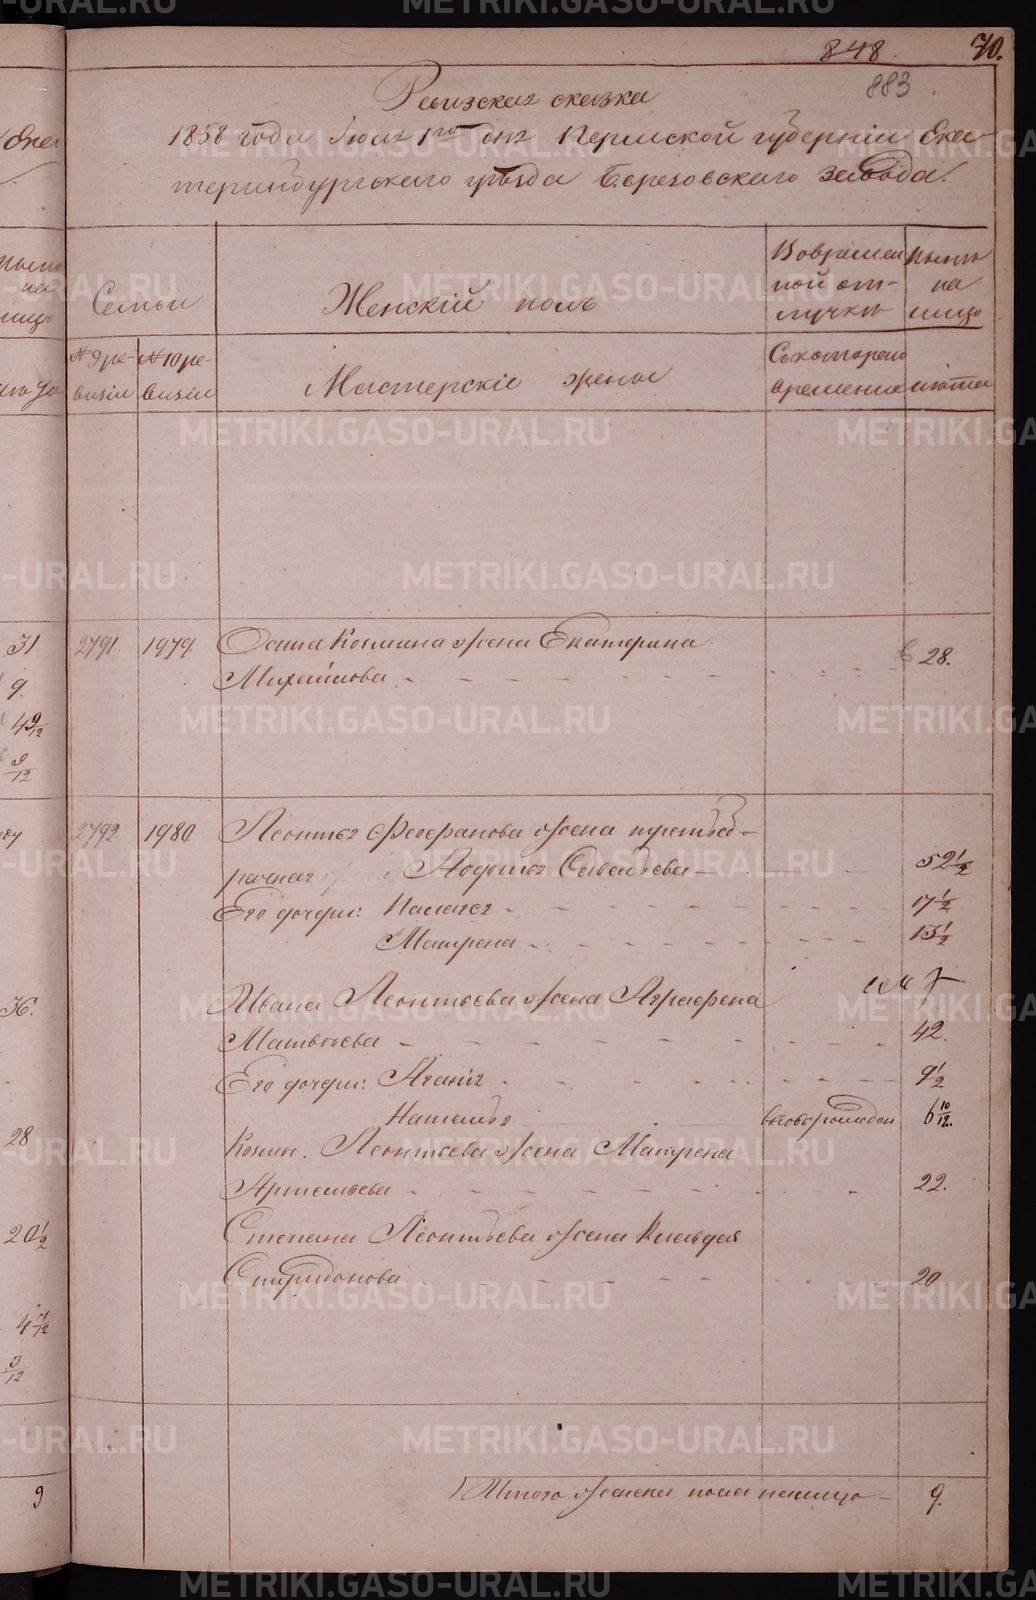 848. 70.
883.
Ревизская сказка
1858 года Июля 1го дня Пермской губернiи Ека-
теринбургскаго уѣзда Березовскаго завода.
Семьи
Женскiй полъ
Во времен
ной от-
лучкѣ
Нынѣ
на
лицо
№ 9 ре-
визiи
№ 10 ре-
визiи
Мастерскiе жены
Съ котораго
времени
лѣта
2791. 1979. Осипа Козмина жена Екатерина
Михайлова 28.
2792. 1980. Леонтья Феофанова жена
Савельева 52 1/2
Его дочери: Палагея 17 1/2
Матрена 15 1/2
Ивана Леонтьева жена Аграфена
Матвѣева 42.
Его дочери: Агапiя 9 1/2
Наталья 6 10/12.
Козмы Леонтьева жена Матрена
Артемьева 22.
Степана Леонтьева жена Клавдiя
Спиридонова 20
Итого женска пола налицо 9.
31
9.
4 9/12
9/12
36.
28
20 1/2
4 7/12
3/12
9
METRIKI.GASO-URAL.RU